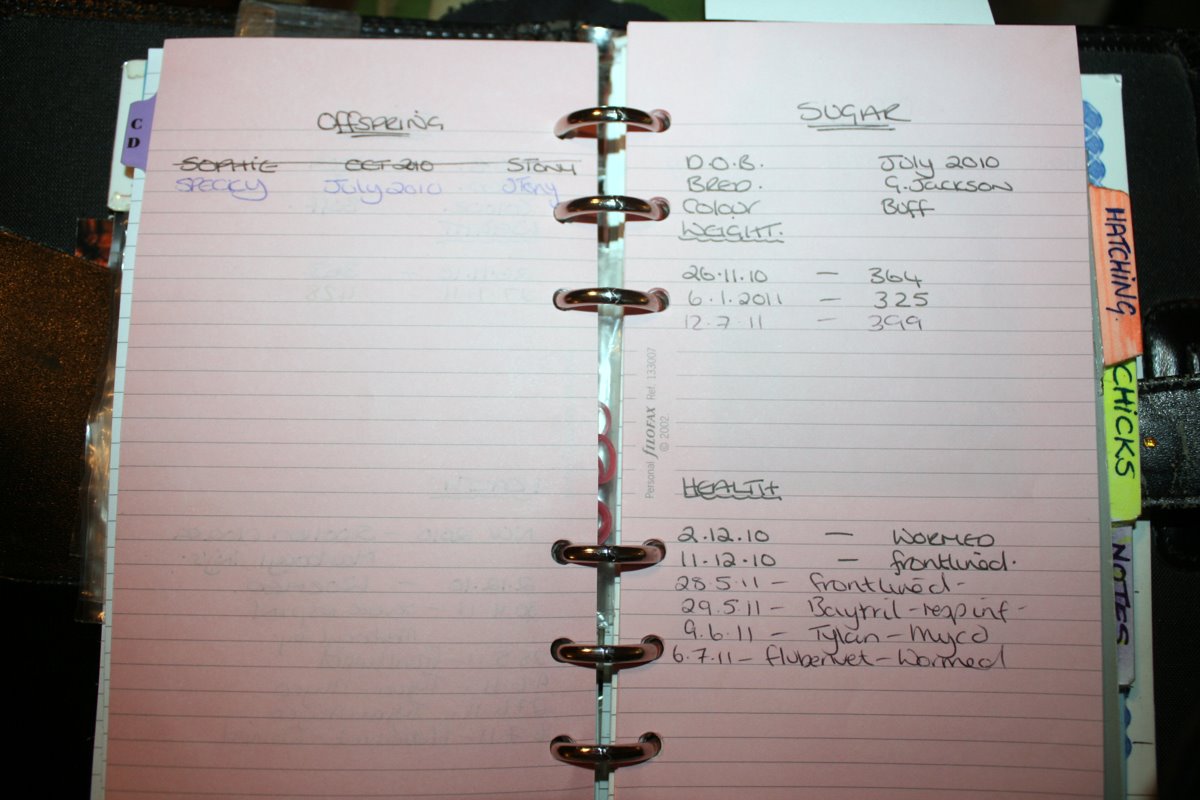 C
D
OFFSPRING
SOPHIE OCT 2010 STONY
SPECKY July 2010 STONY
SUGAR
D.O.B. July 2010
BRED. G. JACKSON
COLOUR BUFF
WEIGHT.
26.11.10 – 364
6.1.2011 – 325
12.7.11 – 399
Personal FILOFAX Ref. 133007
© 2002
HEALTH
2.12.10 – WORMED
11.12.10 – frontlined.
28.5.11 – frontlined –
29.5.11 – Baytril – resp inf –
9.6.11 – Tylan – Myco
6.7.11 – flubenvet – Wormed
HATCHING.
CHICKS
NOTES